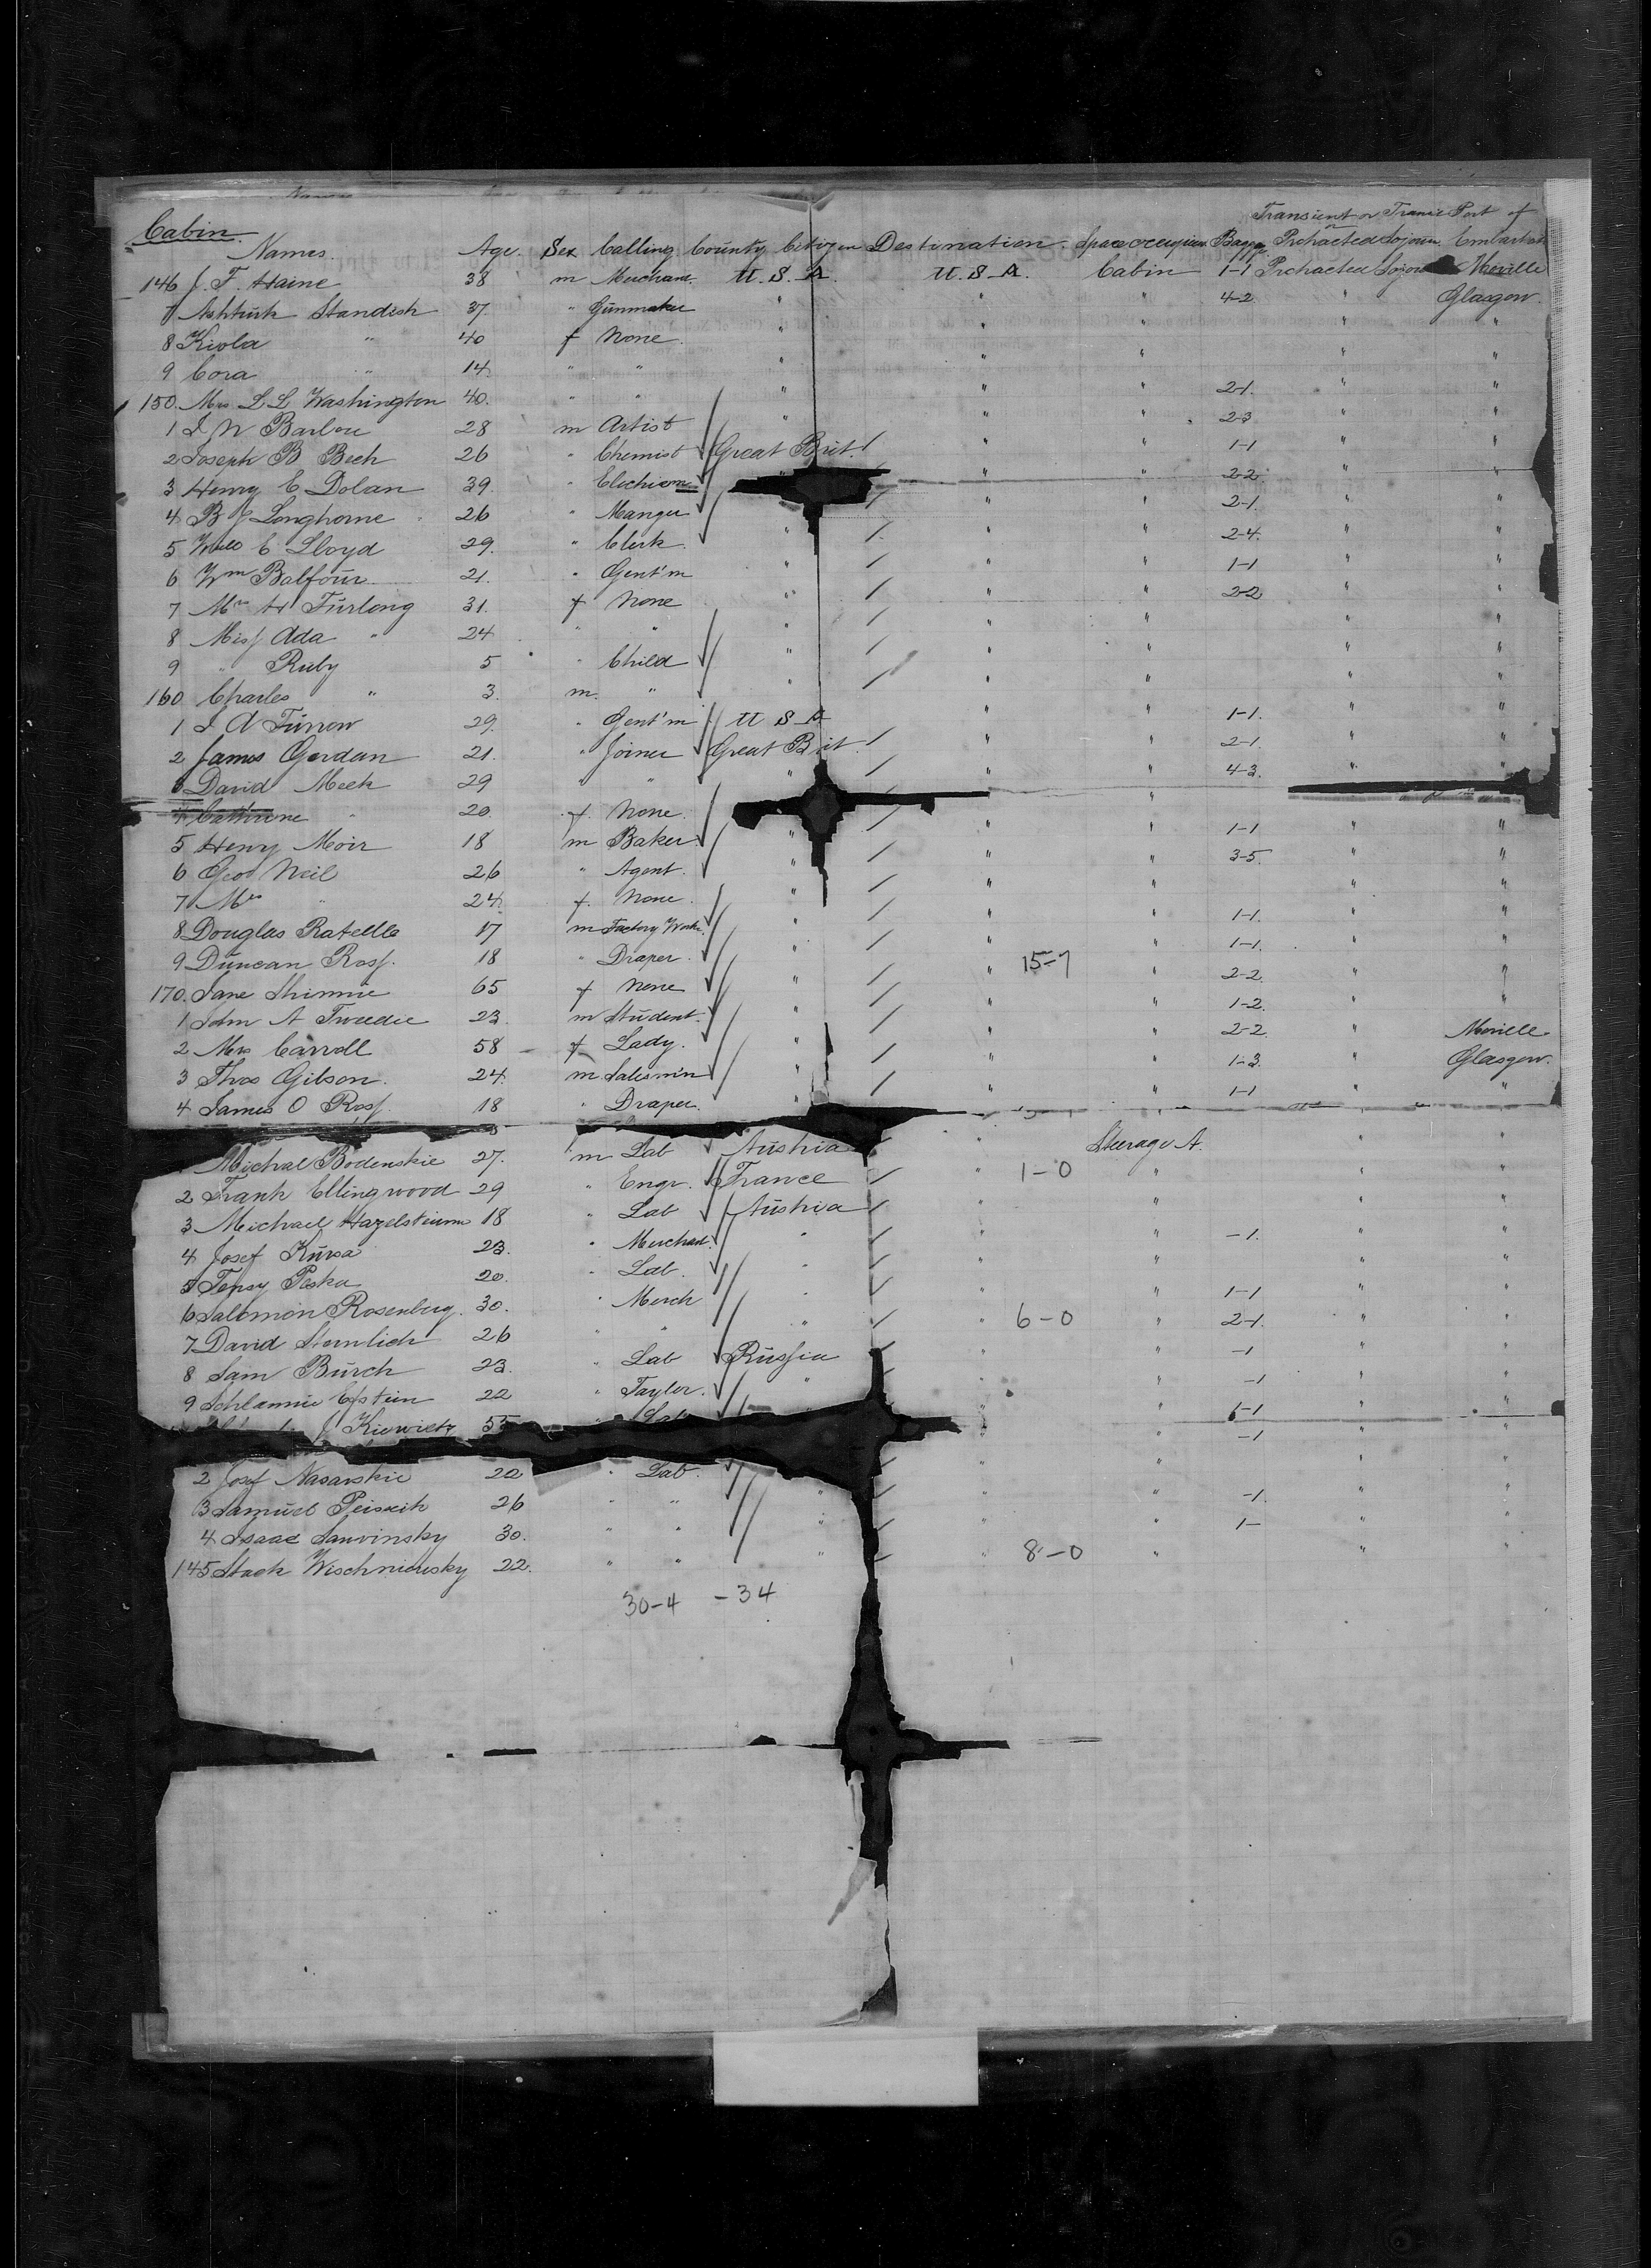 Cabin.
Transient or Transit Port of
Names. Age. Sex Calling County Citizen Destination. Space occupied Bagg. Protracted Sojourn Embarkat
146 J. F. Haine 38 m Merchant. U.S.A. U.S.A. Cabin 1-1 Protracted Sojour Moville
7 Standish 37 " Gunmaker " " " 4-2 " Glasgow.
8 Kiola " 40 f None. " " " " "
9 Cora " 14 " " " " " " "
150. Mrs L L Washington 40. " " " " " 2-1. " "
1 J W Barlow 28 m Artist " " " 2-3 " "
2 Joseph B Beeh 26 " Chemist Great Brit. " " 1-1 " "
3 Henry E Dolan 39. " " " 2-2. " "
4 B J Longhorne 26 " Manger " " 2-1. " "
5 E Lloyd 29. " Clerk. " " " 2-4. " "
6 Wm Balfour 21. " Gent'm " " " 1-1 " "
7 Mrs H Furlong 31. f None " " " 2-2 " "
8 Miss Ada " 24 " " " " " " "
9 " Ruby 5 " Child " " " " "
160 Charles " 3. m. " " " " " "
1 J A Furrow 29. " Gent'm U S A " " 1-1. " "
2 James Gordan 21. " Joiner Great Brit. " " 2-1. " "
David Meek 29 " " " " " 4-3. " "
4 Cathrine " 20. f. None. "
5 Henry Moir 18 m Baker " " " 1-1 " "
6 Geo Neil 26 " Agent. " " " 3-5. " "
7 Mrs " 24 f. None. " " " " "
8 Douglas 17 m Factory Work. " " " 1-1. " "
9 Duncan Ross. 18 " Draper. " " 15-7 " 1-1. " "
170. Jane Shinnie 65 f None " " " 2-2. " "
1 John A Tweedie 23. m Student. " " " 1-2. " "
2 Mrs Carroll 58 f Lady. " " " 2-2. " Moville
3 Thos Gibson. 24. m Salesm'n " " " 1-3. " Glasgow.
4 James O Ross. 18 " Draper. " " " 1-1 " "
Michal Bodenskie 27. m Lab Austria " Steerage A. " "
2 Frank Ellingwood 29 " Engr. France " 1-0 " " "
3 Michael 18 " Lab Austria " " " "
4 Josef Kursa 23. " Merchant. " " " -1. " "
5 Peska 20. " Lab. " " " " "
6 Salomon Rosenberg. 30. " Merch " " " 1-1 " "
7 David Sternlich 26 " " " " 6-0 " 2-1. " "
8 Sam Burch 23. " Lab Russia " " -1 " "
9 Schlamie Epstein 22 " Taylor. " " " -1 " "
J Kiewietz 55 " Lab " " 1-1 " "
-1 "
2 Josef Nasarskie 22 " Lab. " " "
3 Samuel 26 " " " " -1. " "
4 Isaac Lawvinsky 30. " " " " 1- " "
145 Wischniewsky 22. " " " " 8-0 " " "
30-4 -34